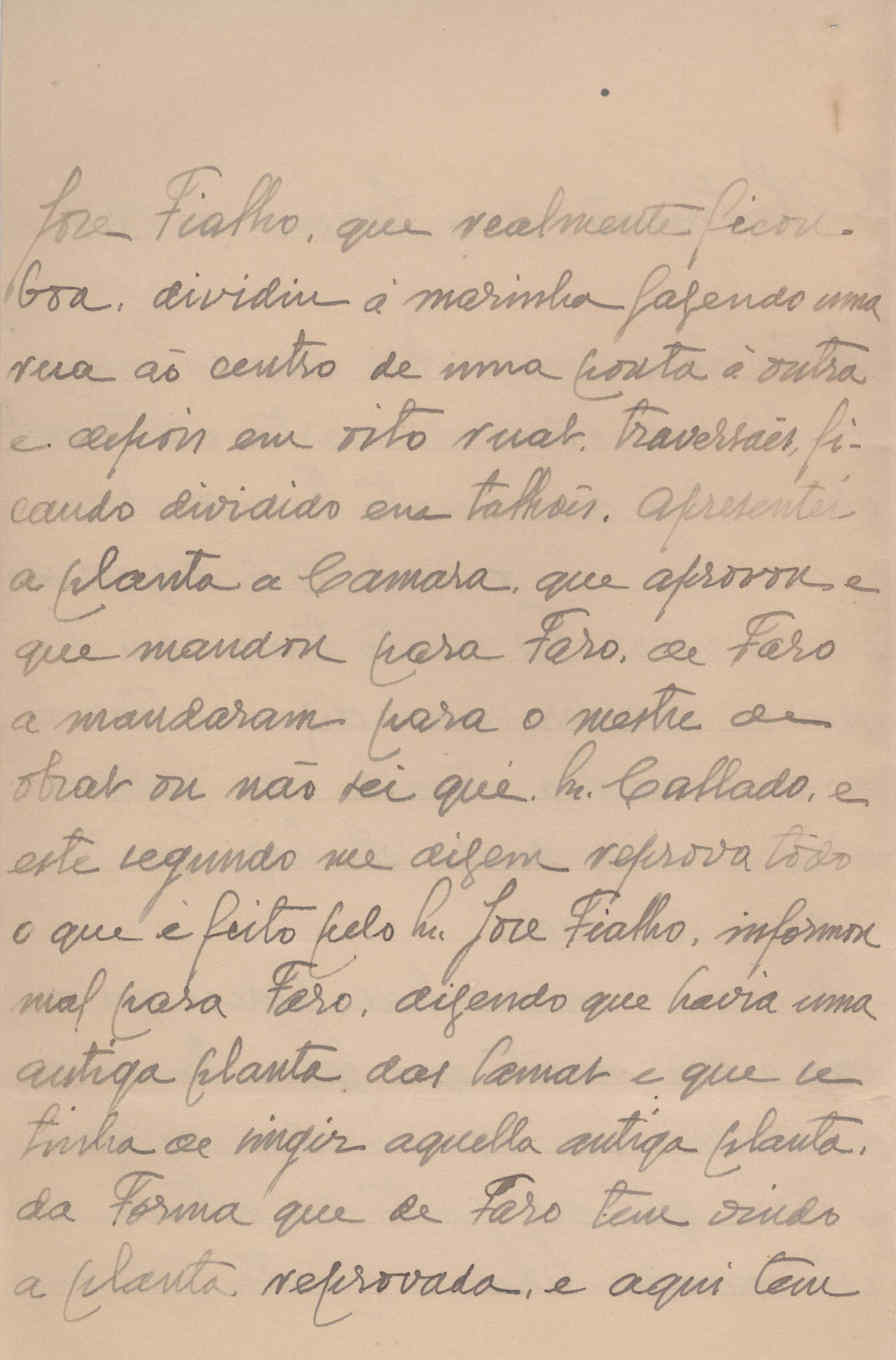 José Fialho, que realmente ficou
boa, dividiu á marinha fazendo uma
rua aõ centro de uma ponta á outra
e depois em oito ruas, traversaes, fi-
cando dividido em talhões. Apresentei
a planta a Camara, que aprovou e
que mandou para Faro, de Faro
a mandaram para o mestre de
obras ou não sei quê. Sr. Callado, e
este segundo me dizem reprova tôdo
o que é feito pelo Sr. José Fialho, informou
mal para Faro, dizendo que havia uma
antiga planta das Camas e que se
tinha de singir aquella antiga planta,
da Forma que de Faro tem vindo
a planta reprovada, e aqui tem